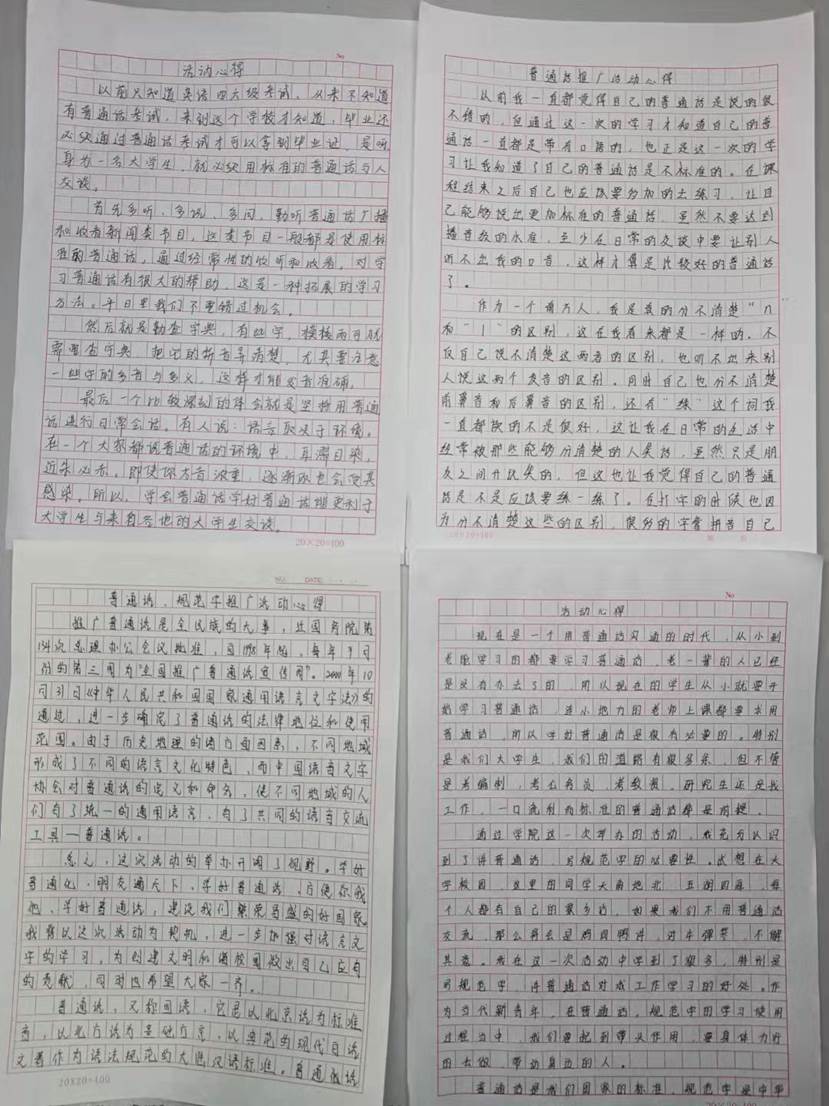 No
活动心得
以前只知道英语四六级考试，从来不知道
有普通话考试，来到这个学校才知道，毕业还
必须通过普通话考试才可以拿到毕业证，是呀
身为一名大学生，就必须用标准的普通话与人
交谈。
首先多听、多说、多问，勤听普通话广播
和收看新闻类节目，这类节目一般都是使用标
准的普通话，通过经常性的收听和收看，对学
习普通话有很大的帮助，这是一种拓展的学习
方法。平日里我们不要错过机会。
然后就是勤查字典，有些字，模棱两可就
需要查字典，把它的拼音弄清楚，尤其要注意
一些字的多音与多义，这样才能发音准确。
最后一个比较深刻的体会就是坚持用普通
话进行日常会话。有人说：语言取决于环境。
在一个大家都说普通话的环境中，耳濡目染，
近朱必赤。即使你方言浓重，逐渐地也会受其
感染。所以，学会普通话学好普通话谁更利于
大学生与来自各地的大学生交谈。
20×20=400
普通话推广活动心得
从前我一直都觉得自己的普通话是说的很
不错的，但通过这一次的学习才知道自己的普
通话一直都是带有口音的，也正是这一次的学
习让我知道了自己的普通话是不标准的。在课
程结束之后自己也应该要多加的去练习，让自
己能够说出更加标准的普通话，虽然不要达到
播音级的水准，至少在日常的交谈中要让别人
听不出我的口音，这样才算是比较好的普通话
了。
作为一个南方人，我是真的分不清楚“n
和“l”的区别，这在我看来都是一样的。不
仅自己说不清楚这两者的区别，也听不出来别
人说这两个发音的区别。同时自己也分不清楚
前鼻音和后鼻音的区别，还有“练”这个词我
一直都说的不是很好，这让我在日常的生活中
经常被那些能够分清楚的人笑话，虽然只是朋
友之间开玩笑的，但这也让我觉得自己的普通
话是不是应该要练一练了。在打字的时候也因
为分不清楚这些的区别，很多的字音拼音自己
20×20=400
NO. DATE
普通话、规范字推广活动心得
推广普通话是全民族的大事，经国务院第
134次总理办公会议批准，自1998年始，每年9月
份的第三周为“全国推广普通话宣传周”。2000年10
月31日《中华人民共和国国家通用语言文字法》的
通过，进一步确定了普通话的法律地位和使用
范围。由于历史地理的诸方面因素，不同地域
形成了不同的语言文化特色，而中国语言文字
协会对普通话的定义和命名，使不同地域的人
们有了统一的通用语言，有了共同的语言交流
工具—普通话。
总之，这次活动的举办开阔了视野。学好
普通化，朋交通天下，学好普通话，方便你我
他，学好普通话，建设我们繁荣昌盛的好国家。
我省以这次活动为契机，进一步加强对语言文
字的学习，为创建文明和谐校园做出自己应有
的贡献，同时也希望大家一齐。
普通话，又称国语，它是以北京话为标准
音，以北方话为基础方言，以典范的现代白话
文著作为语法规范的大进汉语标准。普通低话
20×20=400
No
活动心得
现在是一个用普通话沟通的时代，从小到
老师学习的都要学习普通话，老一辈的人已经
是没有办法了的，所以现在的学生从小就要开
始学习普通话，连小地方的老师上课都要求用
普通话，所以学好普通话是很有必要的。特别
是我们大学生，我们的道路有很多条，但不管
是考编制，考公务员，考教资，研究生还是找
工作，一口流利而标准的普通话都是前提。
通过学院这一次举办的活动，我充分认识
到了讲普通话，写规范字的必要性。试想在大
学校园，这里的同学天南地北，五湖四海，每
个人都有自己的家乡话，如果我们不用普通话
交流，那么将会是鸡同鸭讲，对牛弹琴，不解
其意。我在这一次活动中学到了很多，特别是
写规范字，讲普通话对我工作学习的好处。作
为当代新青年，在普通话，规范字的学习使用
过程当中，我们要起到带头作用，要身体力行
的去做，带动身边的人。
普通话是我们国家的标准，规范字是中华
20×20=400